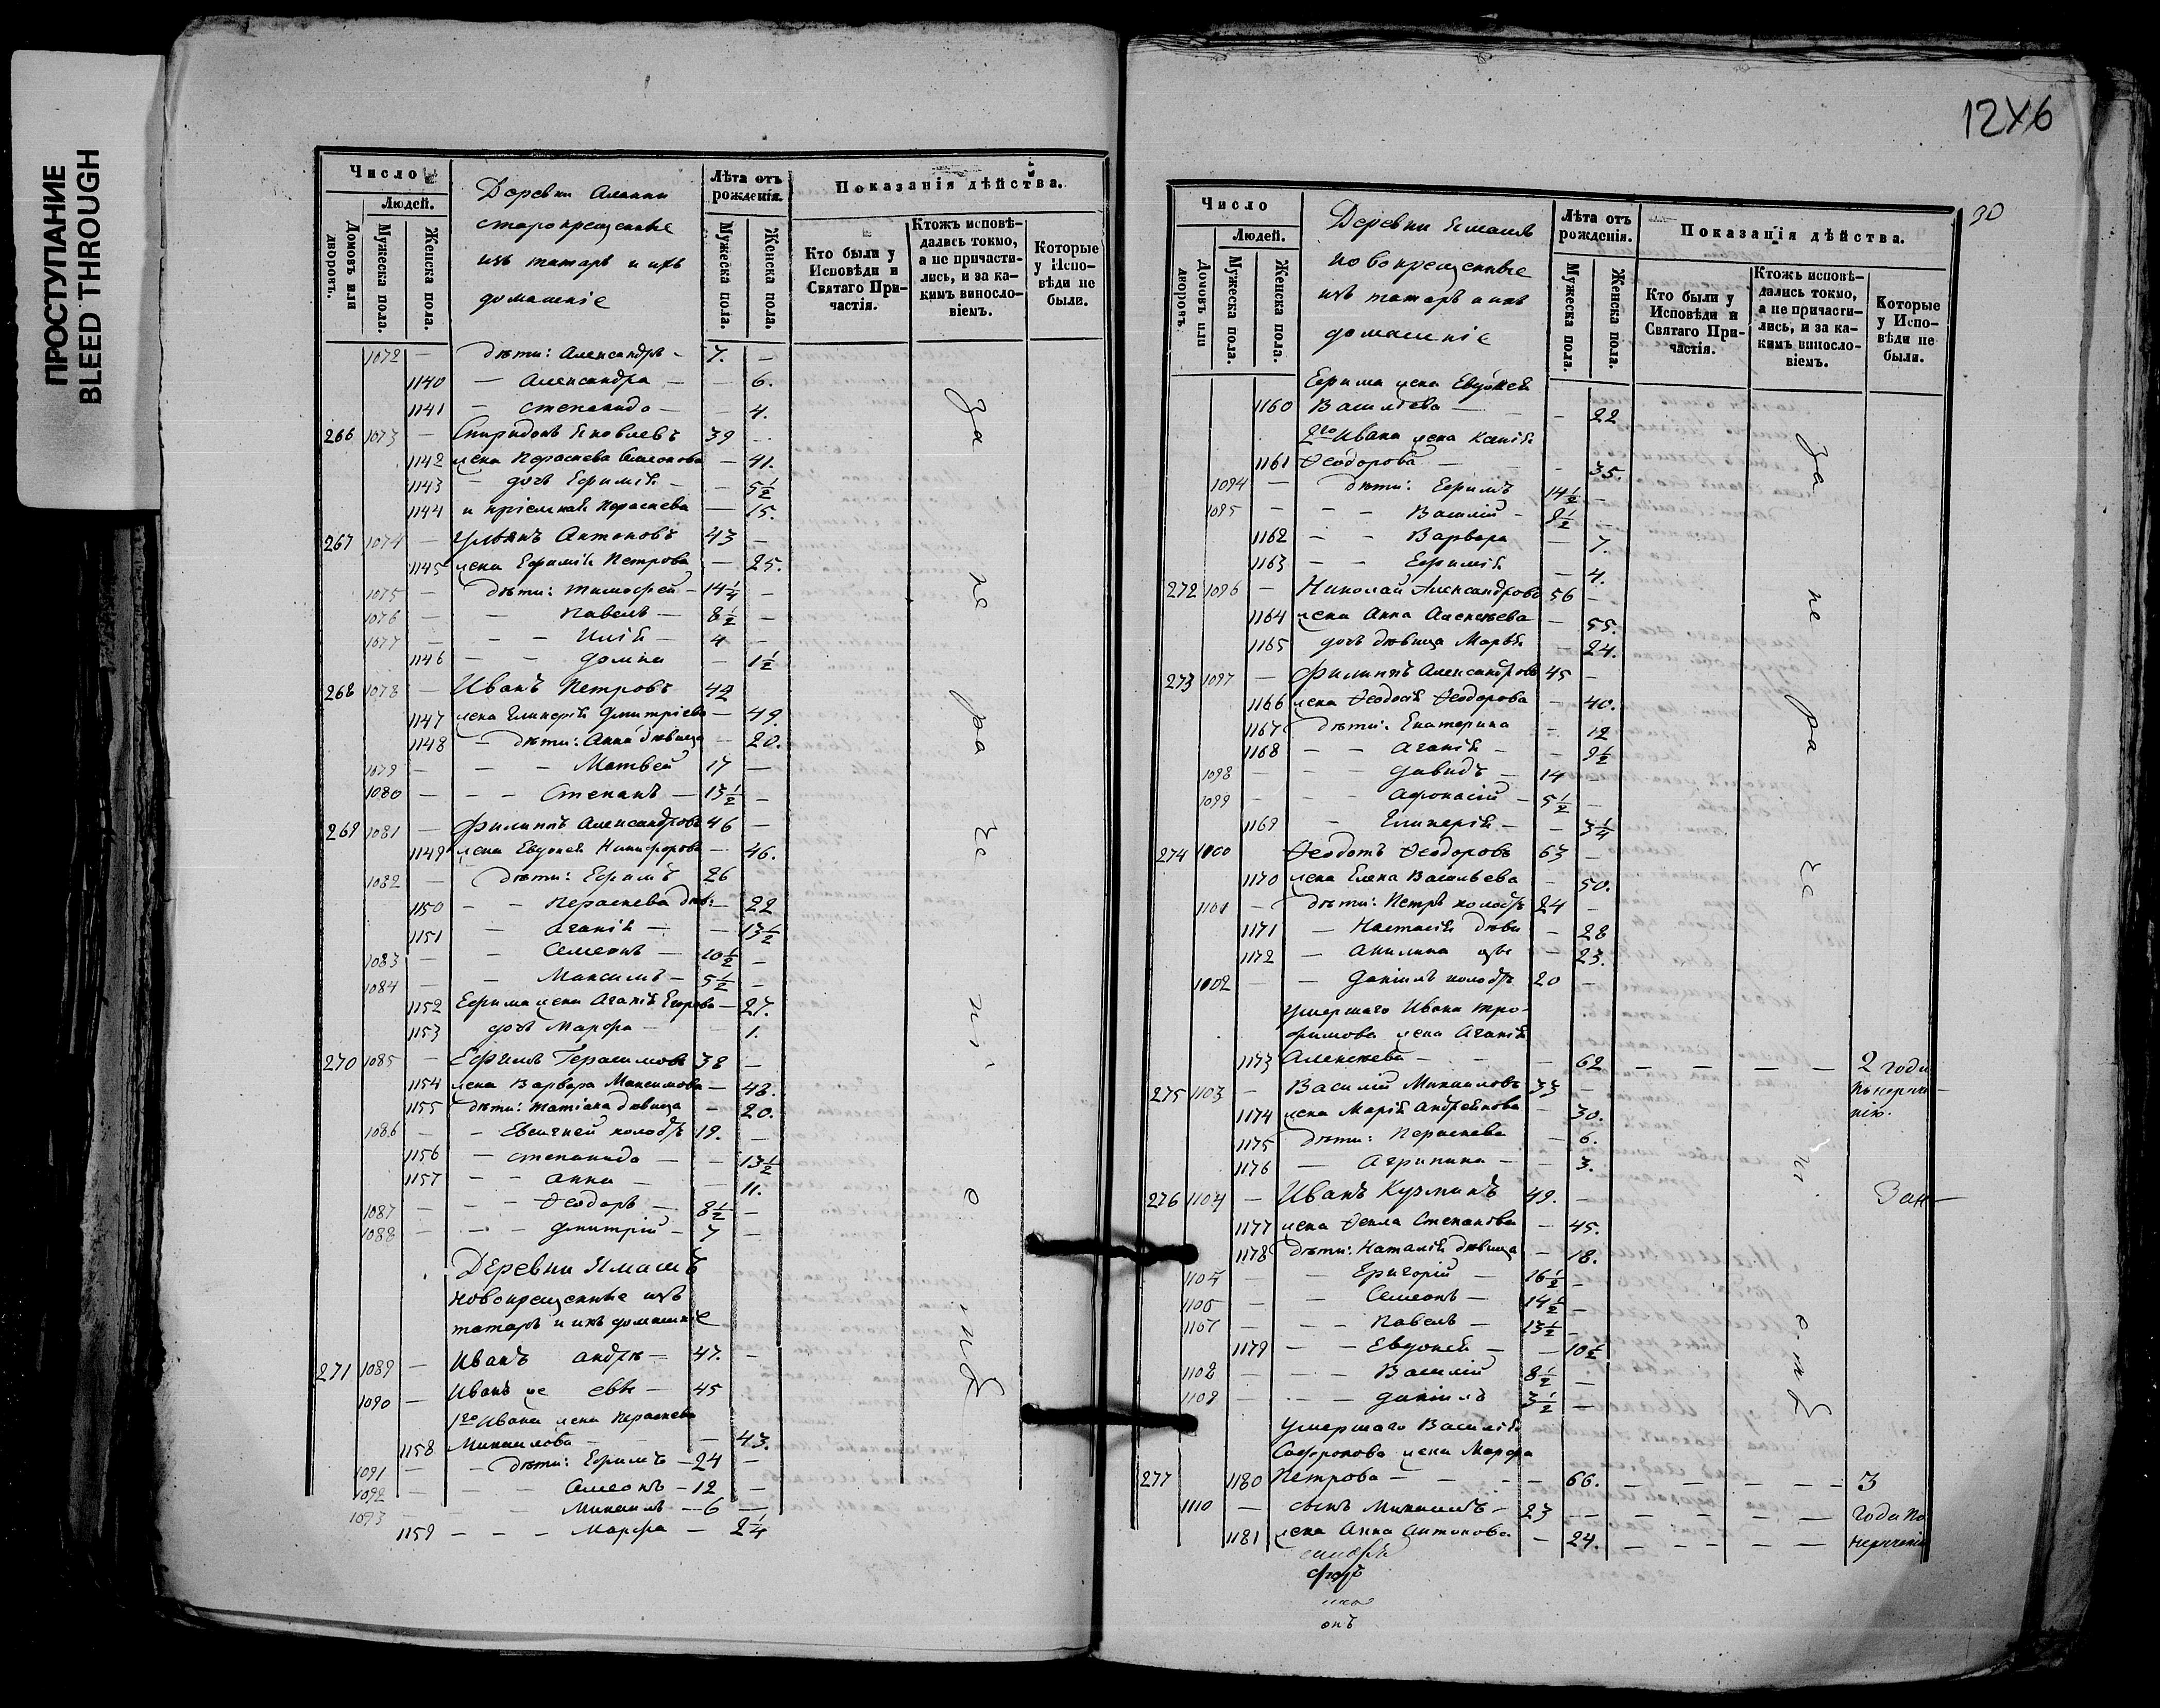 ПРОСТУПАНИЕ
BLEED THROUGH
Число
Людей.
Домовъ или дворовъ.
Мужеска пола.
Женска пола.
Деревни
старокрещенные
изъ татаръ и ихъ
домашніе
Лѣта отъ рожденія.
Мужеска пола.
Женска пола.
Показанія дѣйства.
Кто были у Исповѣди и Святаго Причастія.
Ктожъ исповѣдались токмо, а не причастились, и за какимъ винословіемъ.
Которые у Исповѣди не были.
1072 — дѣти: Александръ — 7. —
1140 — Александра — — 6.
1141 — Степанида — — 4.
266 1073 — Спиридонъ Яковлевъ 39 —
1142 жена Параскева Симеонова — 41.
1143 — дочь Ефимія — — 5½
1144 и пріемная Параскева — 15.
267 1074 — Ульянъ Антоновъ 43 —
1145 жена Ефимія Петрова — 25.
1075 — дѣти: Тимофей — 14¼ —
1076 — — Павелъ — 8½ —
1077 — — — Илія — 4 —
1146 — — Домна — 1½
268 1078 — Иванъ Петровъ 42
1147 жена Гликерія Дмитріева — 49.
1148 — дѣти: Анна дѣвица — 20.
1079 — — — Матвей 17 —
1080 — — — Степанъ — 13½ —
269 1081 — Филиппъ Александровъ 46 —
1149 жена Евдокея Никифорова — 46.
1082 — дѣти: Ефимъ 26
1150 — — Параскева дѣв: — 22
1151 — Агапія — — 13½
1083 — — Семеонъ — 10½ —
1084 — — Максимъ — 5½ —
1152 Ефима жена Агапія Егорова — 27.
1153 дочь Марфа — 1.
270 1085 — Ефимъ Герасимовъ 38 —
1154 жена Варвара Максимова — 48.
1155 дѣти: Татіана дѣвица — 20.
1086 — — Евгеней холостъ 19. —
1156 — Степанида — — 13½
1157 — — Анна — 11.
1087 — — — Ѳеодоръ — 8½ —
1088 — — — Дмитрій — 7 —
Деревни Ямашъ
новокрещенные изъ
татаръ и ихъ домашніе
271 1089 — Иванъ Андре — 47. —
1090 — Иванъ же евы — 45
1го Ивана жена Параскева
1158 Михаилова — — 43.
1091 — — дѣти: Ефимъ — 24 —
1092 — — Симеонъ — 12 —
1093 — — Михаилъ — 6 —
1159 — — — Марфа — 2¼
за не ра че ні е мъ
12Х6
30
Число
Людей.
Домовъ или дворовъ.
Мужеска пола.
Женска пола.
Деревни Ямашъ
новокрещенные
изъ татаръ и ихъ
домашніе
Лѣта отъ рожденія.
Мужеска пола.
Женска пола.
Показанія дѣйства.
Кто были у Исповѣди и Святаго Причастія.
Ктожъ исповѣдались токмо, а не причастились, и за какимъ винословіемъ.
Которые у Исповѣди не были.
Ефима жена Евдокея
1160 Васильева — — 22
2го Ивана жена Ксенія
1161 Ѳеодорова — — 35.
1094 — дѣти: Ефимъ 14½ —
1095 — — — Василій — 9½ —
1162 — — Варвара — 7.
1163 — — Ефимія — 4.
272 1096 — Николай Александровъ 56 —
1164 жена Анна Алексѣева — 55.
1165 дочь дѣвица Марья — 24.
273 1097 — Филиппъ Александровъ 45 —
1166 жена Ѳеодосія Ѳеодорова — 40.
1167 дѣти: Екатерина — 12
1168 — — Агапія — — 9½
1098 — — — Давидъ — 14 —
1099 — — — Афонасій — 5½ —
1169 — Гликерія — — 3¼
274 1100 Ѳеодотъ Ѳеодоровъ 63 —
1170 жена Елена Васильева — 50.
1101 — дѣти: Петръ холостъ 24 —
1171 — Настасія дѣви — 28
1172 — Акилина — 23.
1102 — — Даніилъ холостъ 20 —
умершаго Ивана Тро-
фимова жена Агапія
1173 Алексѣева — — — 62 — — — — 2 года
275 1103 — Василій Михаиловъ 33 —
по нераче
нію.
1174 жена Марія Андреянова — 30.
1175 дѣти: Параскева — 6.
1176 — Агрипина — — 3.
276 1104 — Иванъ Кузминъ 49. —
1177 жена Ѳекла Степанова — 45.
1178 дѣти: Наталія дѣвица — 18.
1105 — — Григорій — 16½ —
1106 — — Семеонъ — 14½ —
1107 — — — Павелъ — 13½ —
1179 — — Евдокея — — 10½
1108 — — — Василій 8½ —
1109 — — — Даніилъ 3½ —
умершаго Василія
Софронова жена Марфа
277 1180 Петрова — — — — 66. — — — — 3
1110 — сынъ Михаилъ — 23 — — — — — года по
1181 жена Анна Антонова — 24. — — — — нераченію
онъ
за не ра че ні е мъ